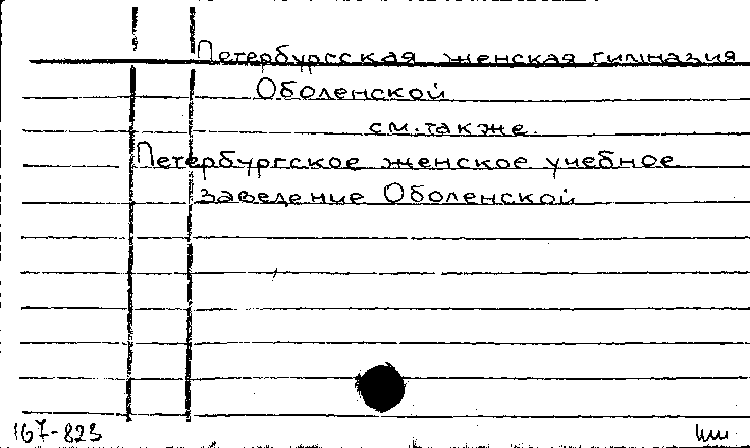 Петербургская женская гимназия
Оболенской
см. также.
Петербургское женское учебное
заведение Оболенской
167-823